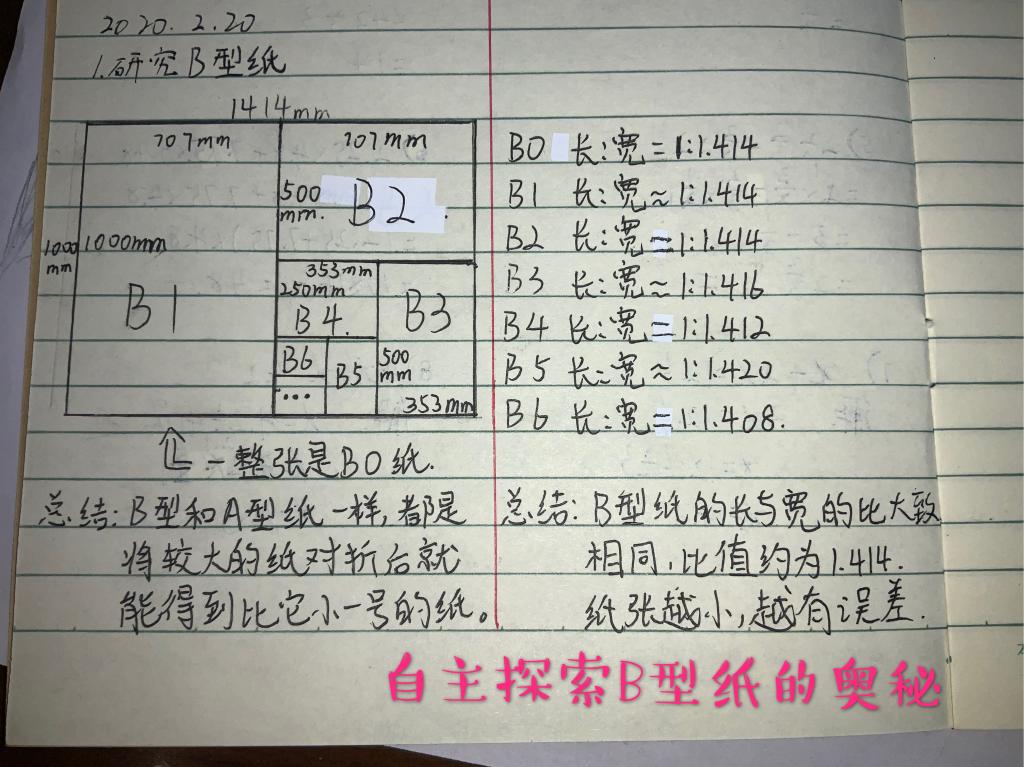 2020.2.20
1.研究B型纸
1414mm
707mm
707mm
500
mm.
B2
1000
mm
1000mm
B1
353mm
250mm
B4.
B3
B6
B5
500
mm
...
353mm
一整张是B0纸.
总结:B型和A型纸一样,都是
将较大的纸对折后就
能得到比它小一号的纸。
B0 长:宽=1:1.414
B1 长:宽≈1:1.414
B2 长:宽=1:1.414
B3 长:宽≈1:1.416
B4 长:宽=1:1.412
B5 长:宽≈1:1.420
B6 长:宽=1:1.408.
总结:B型纸的长与宽的比大致
相同,比值约为1.414.
纸张越小,越有误差.
自主探索B型纸的奥秘